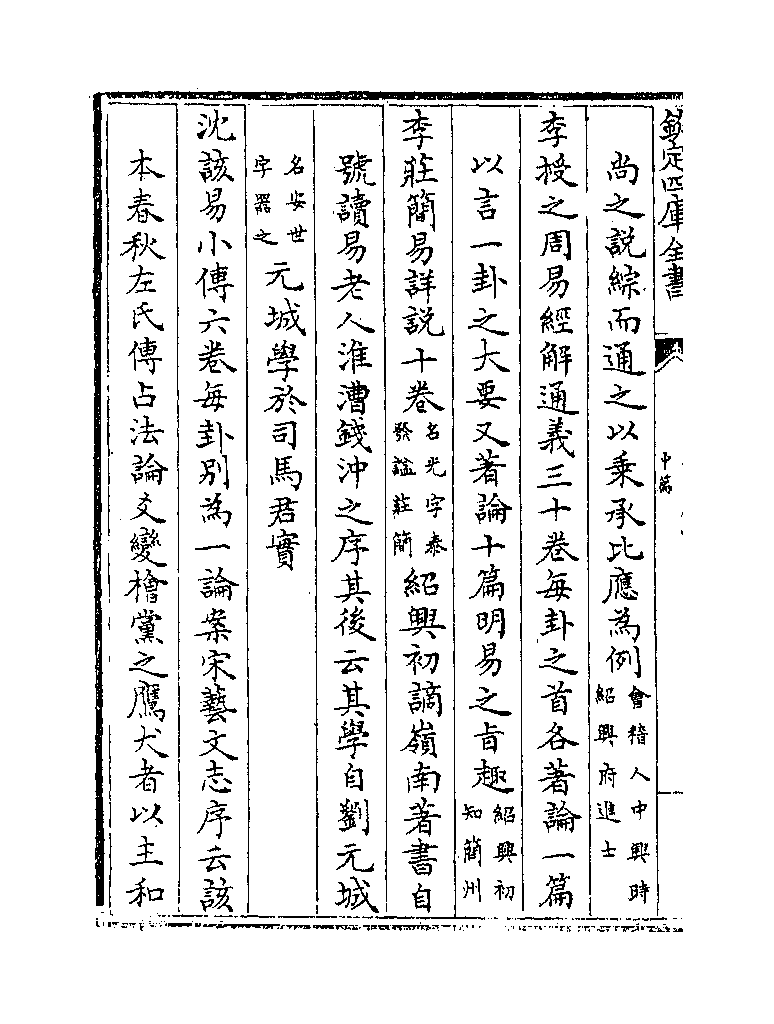 欽定四庫全書
中篇
尚之說綜而通之以乘承比應為例會稽人中興時紹興府進士
李授之周易經解通義三十卷每卦之首各著論一篇
以言一卦之大要又著論十篇明易之旨趣紹興初知簡州
李莊簡易詳說十卷名光字泰發諡莊簡紹興初謫嶺南著書自
號讀易老人淮漕錢沖之序其後云其學自劉元城
名安世字器之元城學於司馬君實
沈該易小傳六卷每卦别為一論案宋藝文志序云該
本春秋左氏傳占法論爻變檜黨之鷹犬者以主和